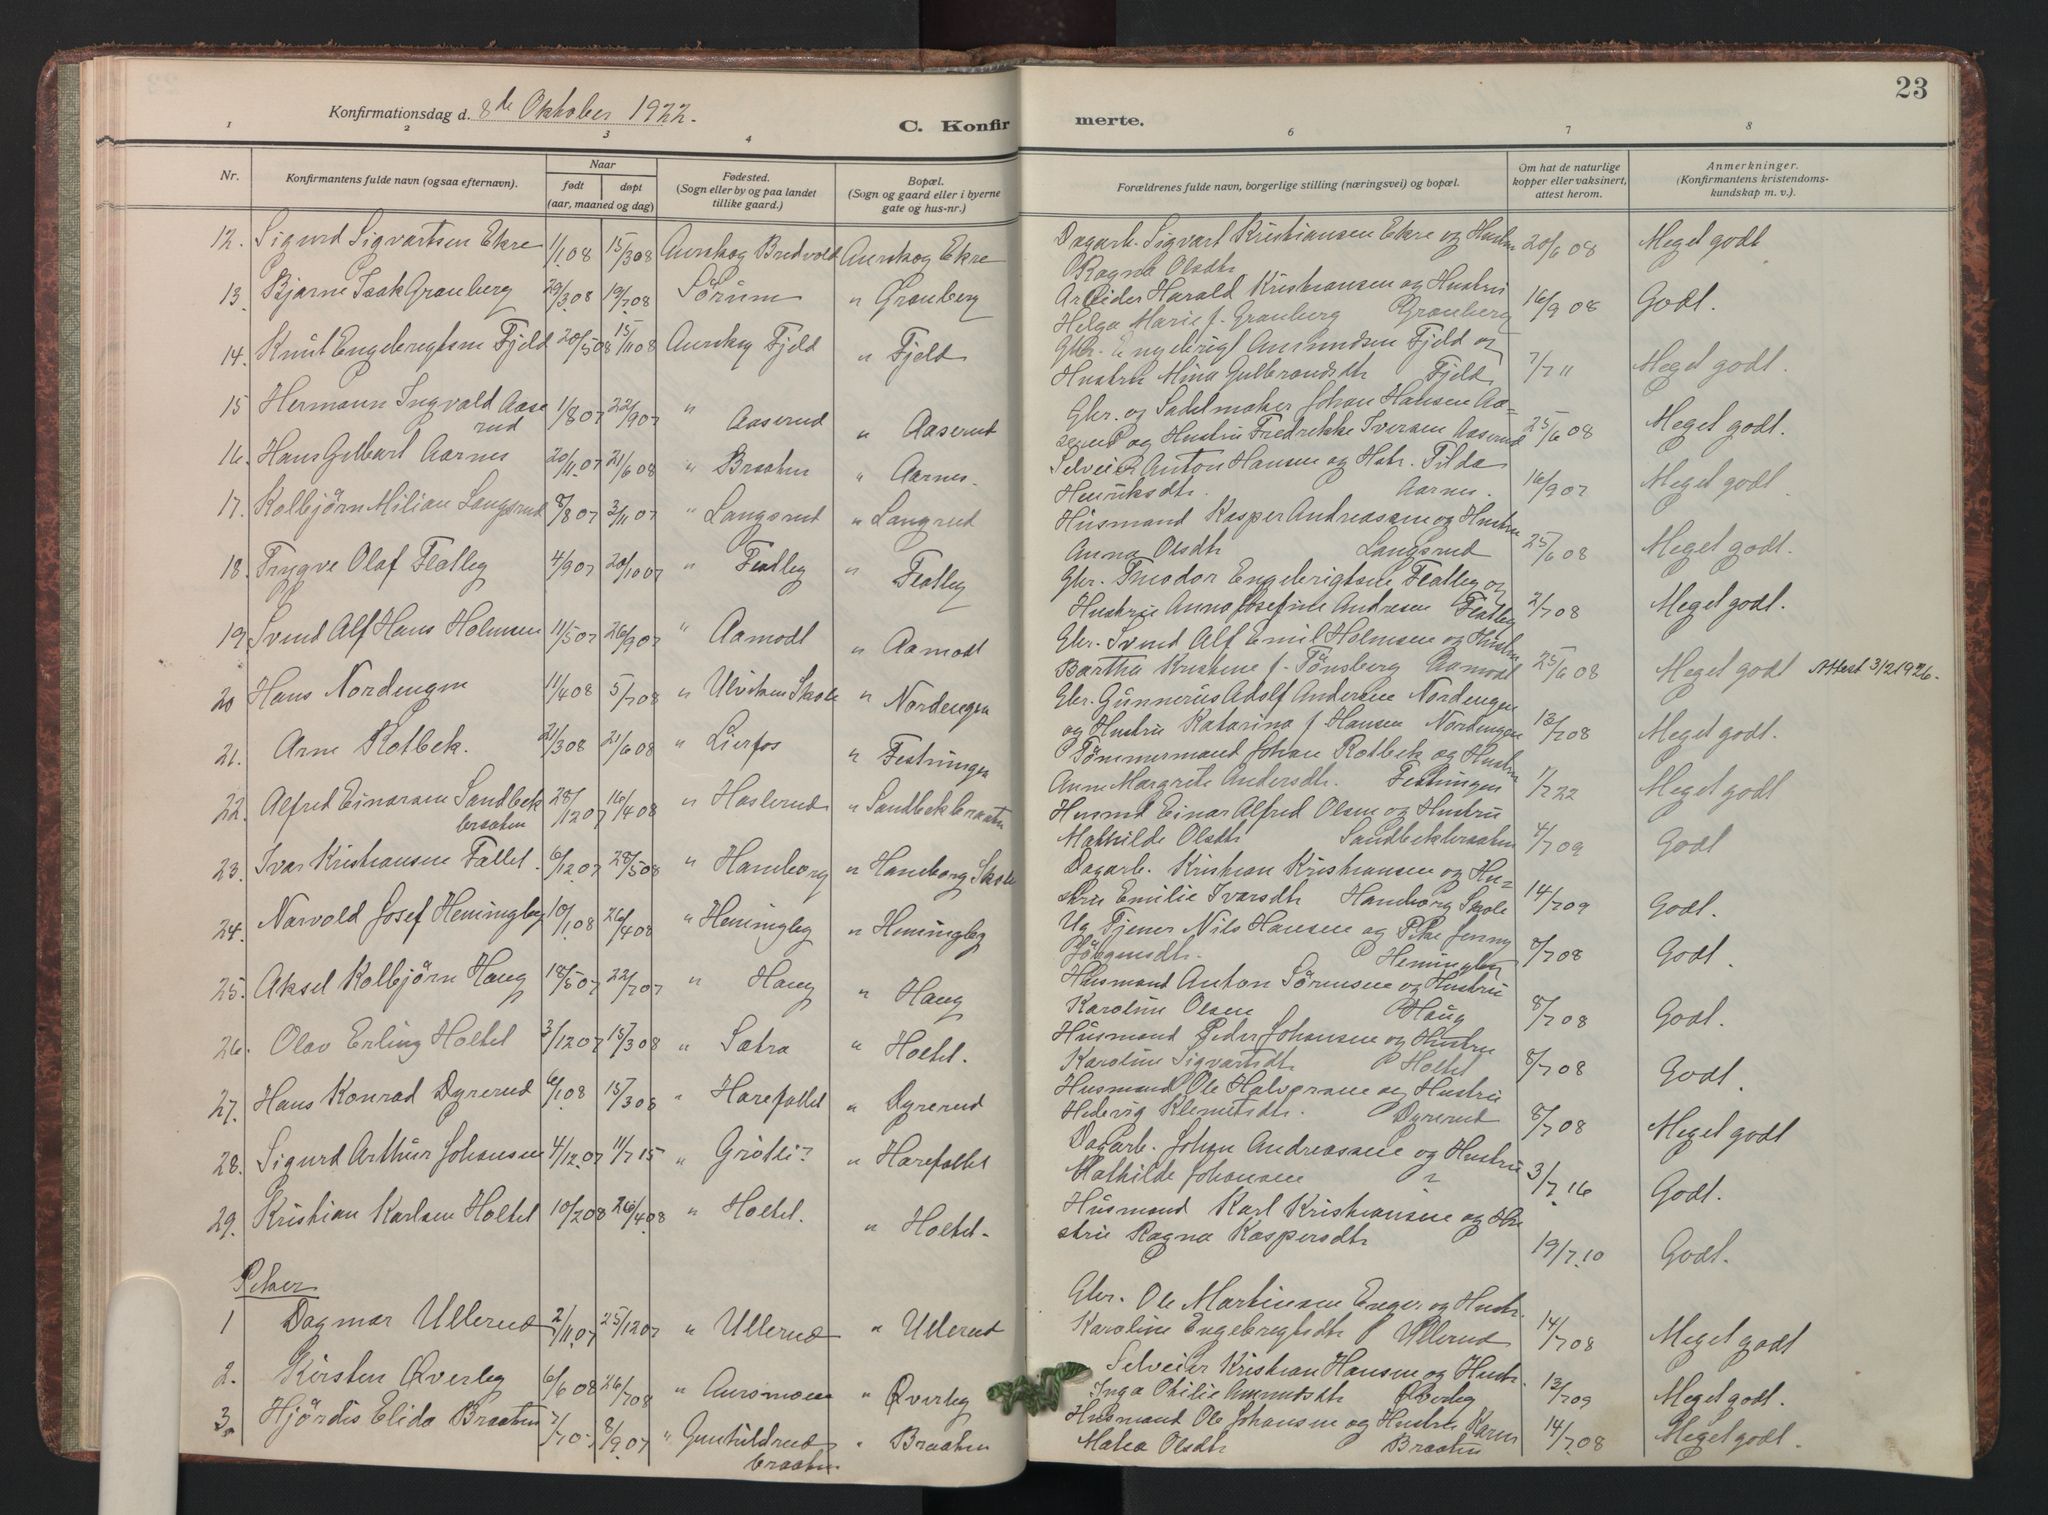 23
Konfirmationsdag d. 8de Oktober 1922.
C. Konfirmerte.
1 2 3 4 6 7 8
Nr.
Konfirmantens fulde navn (ogsaa efternavn).
Naar
født døpt
(aar, maaned og dag)
Fødested.
(Sogn eller by og paa landet
tillike gaard.)
Bopæl.
(Sogn og gaard eller i byerne
gate og hus-nr.)
Forældrenes fulde navn, borgerlige stilling (næringsvei) og bopæl.
Om hat de naturlige
kopper eller vaksinert,
attest herom.
Anmerkninger.
(Konfirmantens kristendoms-
kundskap m. v.).
12. Sigurd Sigvartsen Ekre 1/1 08 15/3 08 Aurskog Bredvold Aurskog Ekre Dagarb. Sigvart Kristiansen Ekre og Hustru
Ragna Olsdtr 20/6 08 Meget godt
13. Bjarne Isak Granberg 29/3 08 19/7 08 Sörum " Granberg Arbeider Harald Kristiansen og Hustru
Helga Marie f. Granberg Granberg 16/9 08 Godt.
14. Knut Engebregtsen Fjeld 20/5 08 15/11 08 Aurskog Fjeld " Fjeld Gbr. Engebrigt Amundsen Fjeld og
Hustru Mina Gulbrandsdtr Fjeld 7/7 11 Meget godt.
15 Hermann Ingvald Aase
rud 1/8 07 22/9 07 " Aaserud " Aaserud Gbr. og Sadelmaker Johan Hansen Aa=
serud og Hustru Fredrekke Iversen Aaserud 25/6 08 Meget godt.
16. Hans Gilbert Aarnes 20/11 07 21/6 08 " Braaten " Aarnes. Selveier Anton Hansen og Hstr. Tilda
Henriksdtr. Aarnes. 16/9 07 Meget godt
17. Kolbjörn Milian Langsrud 8/8 07 3/11 07 " Langsrud " Langsrud Husmand Kasper Andreassen og Hustru
Anna Olsdtr Langsrud 25/6 08 Meget godt.
18. Trygve Olaf Flatby 4/9 07 20/10 07 " Flatby " Flatby Gbr. Theodor Engebrigtsen Flatby og
Hustru Anna Josefine Andresen Flatby 2/7 08 Meget godt.
19. Svend Alf Hans Holmsen 11/5 07 26/9 07 " Aamodt " Aamodt Gbr. Svend Alf Emil Holmsen og Hustru
Bartha Kristine f. Tønsberg Aamodt 25/6 08 Meget godt Attest 3/2 1926.
20 Hans Nordengen 11/4 08 5/7 08 " Ulviken Skole " Nordengen Gbr. Gunnerius Adolf Andersen Nordengen
og Hustru Katarina f. Hansen Nordengen 13/7 08 Meget godt.
21. Arne Kolbek. 21/3 08 21/6 08 " Lierfos " Festningen Tömmermand Johan Kolbek og Hustru
Anne Margrete Andersdtr. Festningen 1/7 22 Meget godt
22. Alfred Einarsen Sandbek
braaten 28/12 07 16/4 08 " Haslerud " Sandbekbraaten Husmd Einar Alfred Olsen og Hustru
Mathilde Olsdtr Sandbekbraaten 4/7 09 Godt
23. Ivar Kristiansen Fallet 6/12 07 28/5 08 " Haneborg " Haneborg Skole Dagarb. Kristian Kristiansen og Hu=
stru Emilie Ivarsdtr Haneborg Skole 14/7 09 Godt.
24. Narvold Josef Hemingby 10/1 08 26/4 08 " Hemingby " Hemingby Ug Tjener Nils Hansen og Pike Jenny
Jörgensdtr. Hemingby 8/7 08 Godt.
25. Aksel Kolbjörn Haug 18/5 07 22/7 07 " Haug " Haug Husmand Anton Sörensen og Hustru
Karoline Olsen Haug 8/7 08 Godt.
26. Olav Erling Holtet 3/12 07 15/3 08 " Satra " Holtet. Husmand Peder Johansen og Hustru
Karoline Sigvartsdtr Holtet 8/7 08 Godt.
27. Hans Konrad Dyrerud 6/1 08 15/3 08 " Harefallet " Dyrerud Husmand Ole Halvorsen og Hustru
Hedevig Klemitsdtr. Dyrerud 8/7 08 Meget godt
28. Sigurd Arthur Johansen 4/12 07 11/7 15 " Grötli? " Harefallet Dagarb. Johan Andreassen og Hustru
Mathilde Johansen ? 3/7 16 Godt.
29. Kristian Karlsen Holtet 10/2 08 26/4 08 " Holtet. " Holtet. Husmand Karl Kristiansen og Hu
stru Ragna Kaspersdtr 19/7 10 Godt.
Piker
1 Dagmar Ullerud 2/11 07 25/12 07 " Ullerud " Ullerud Gbr. Ole Martinsen Enger og Hustr.
Karoline Engebregtsdtr Ullerud 14/7 08 Meget godt
2. Kirsten Øverby 6/6 08 26/7 08 " Aursmoen " Øverby Selveier Kristian Hansen og Hustr.
Inga Otilie Amundsdtr Øverby 13/7 09 Meget godt.
3. Hjördis Elida Braaten 7/7 07 8/9 07 " Gunhildrud
braaten " Braaten Husmand Ole Johansen og Hustru Karen
Matea Olsdtr Braaten 14/7 08 Meget godt.